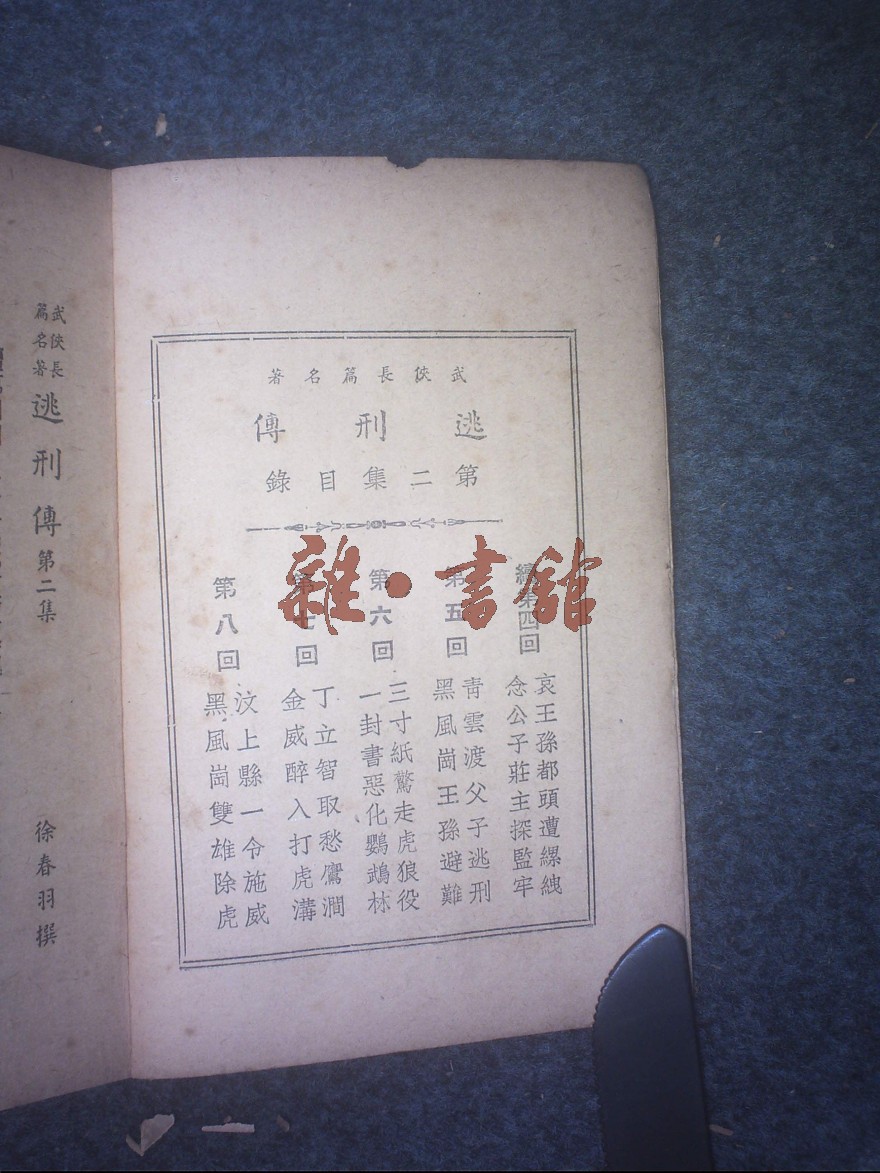 武俠長篇名著
逃刑傳
第二集目錄
續第四回
哀王孫都頭遭縲絏
念公子莊主探監牢
第五回
青雲渡父子逃刑
黑風崗王孫避難
第六回
三寸紙驚走虎狼役
一封書惡化鸚鵡林
第七回
丁立智取愁鷹澗
金威醉入打虎溝
第八回
汶上縣一令施威
黑風崗雙雄除虎
武俠長
篇名著
逃刑傳
第二集
徐春羽撰
雜·書館